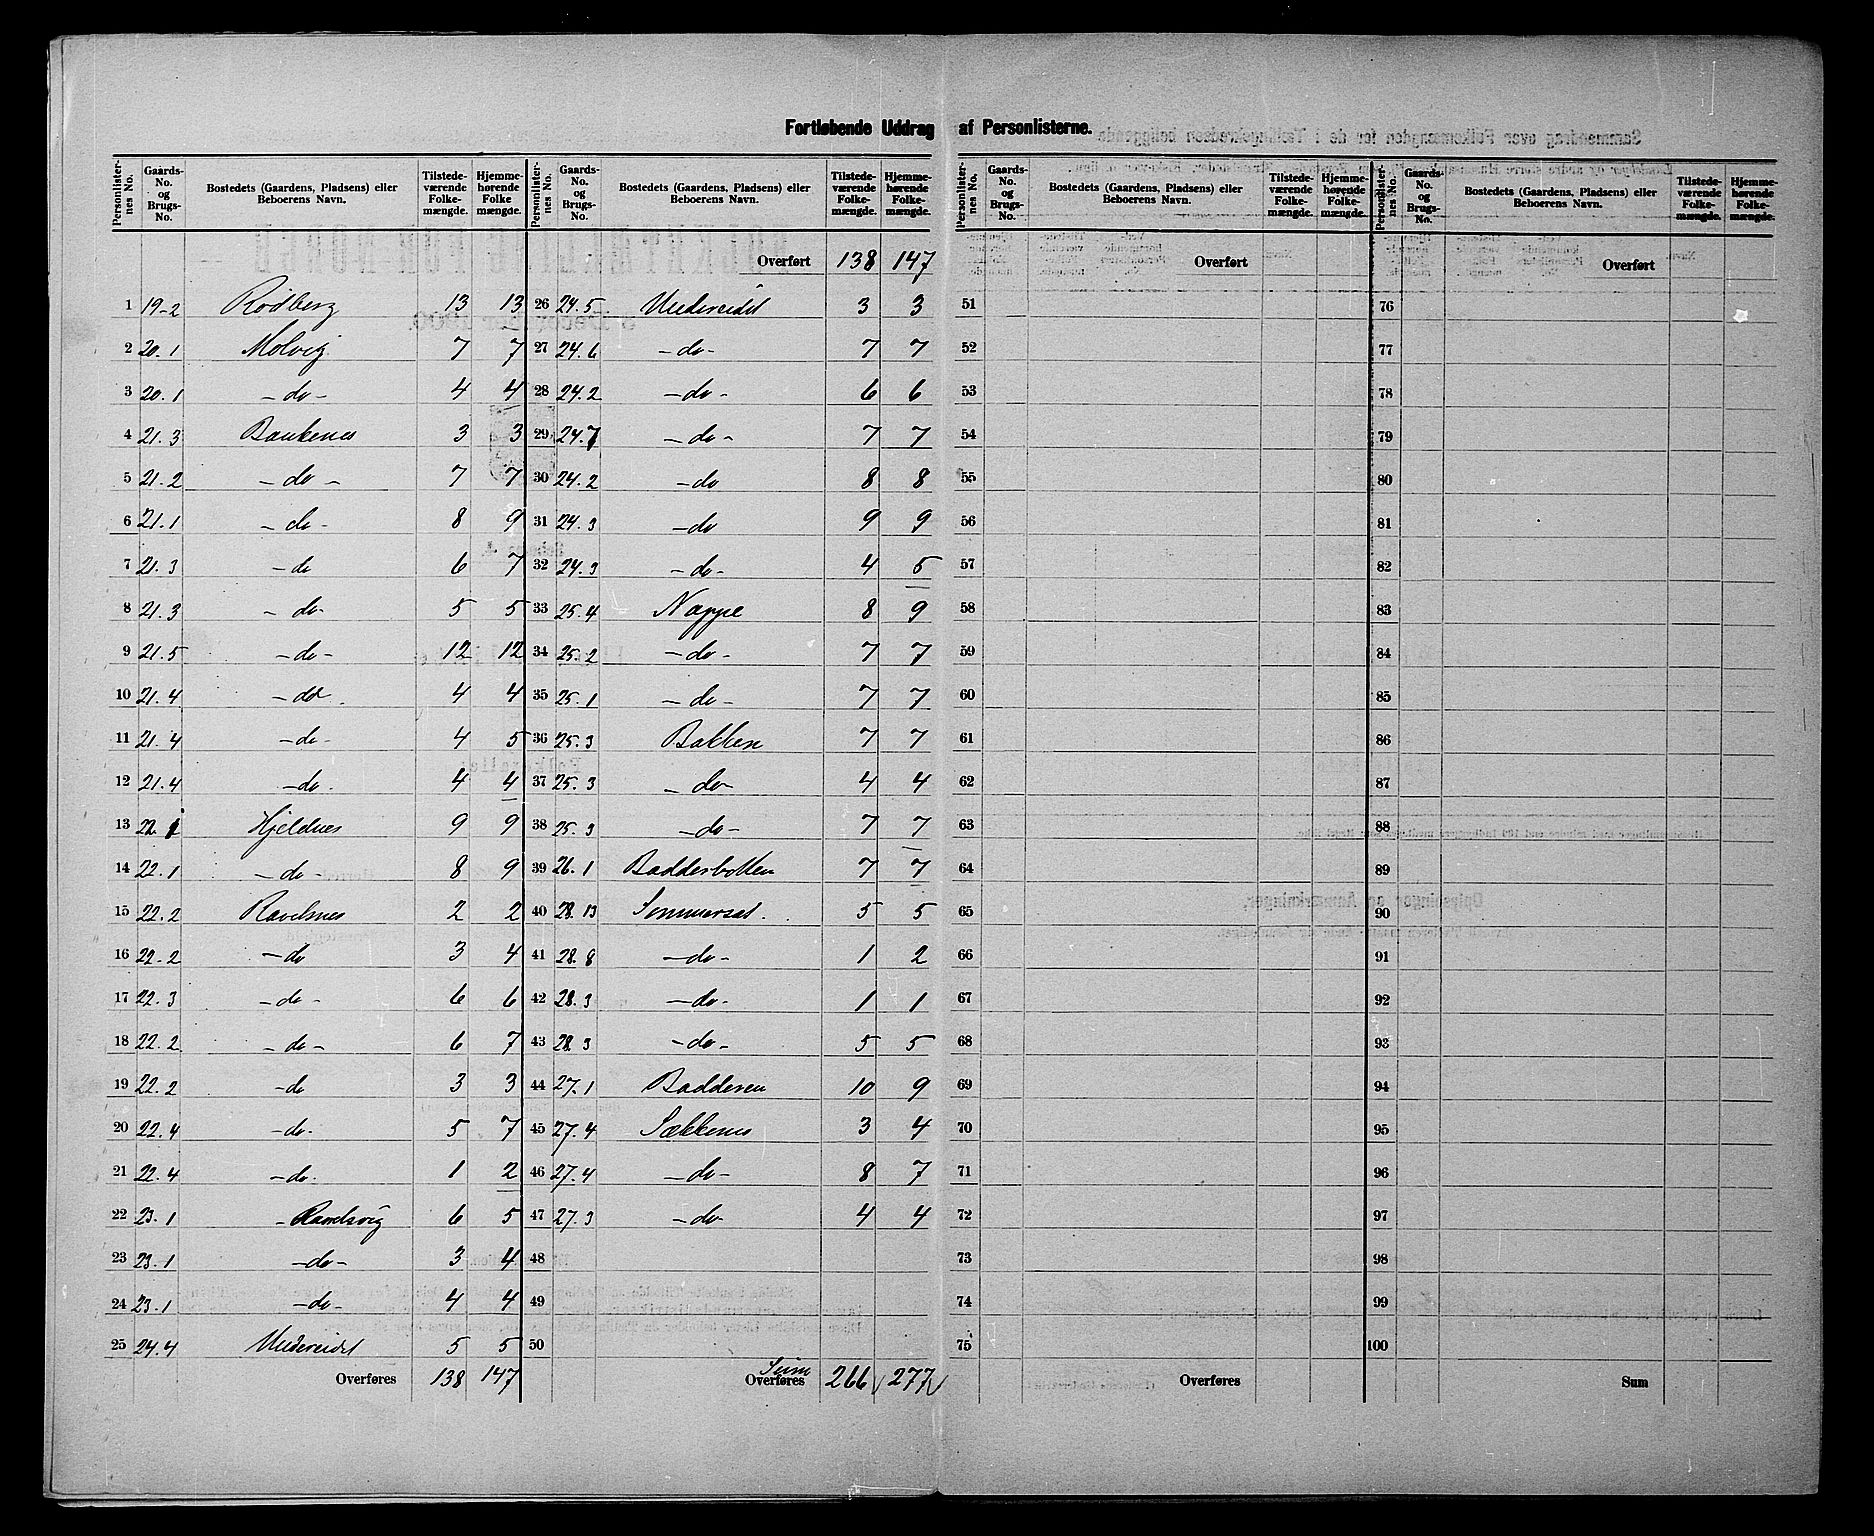 Fortløbende Uddrag af Personlisterne.
Personlister-nes No. | Gaards-No. og Brugs-No. | Bostedets (Gaardens, Pladsens) eller Beboerens Navn. | Tilstede-værende Folke-mængde. | Hjemme-hørende Folke mængde.
1 19-2 Rödberg 13 13
2 20.1 Molvig 7 7
3 20.1 -do- 4 4
4 21.3 Baukenes 3 3
5 21.2 -do- 7 7
6 21.1 -do- 8 9
7 21.3 -do 6 7
8 21.3 -do- 5 5
9 21.5 -do- 12 12
10 21.4 -do- 4 4
11 21.4 -do- 4 5
12 21.4 -do. 4 4
13 22.1 Hjeldnes 9 9
14 22.1 -do- 8 9
15 22.2 Ravelsnes 2 2
16 22.2 -do 3 4
17 22.3 -do- 6 6
18 22.2 -do- 6 7
19 22.2 -do 3 3
20 22.4 -do- 5 7
21 22.4 -do. 1 2
22 23.1 -Ravelsvig 6 5
23 23.1 -do- 3 4
24 23.1 -do- 4 4
25 24.4 Undereidet 5 5
Overføres 138 147
Personlister-nes No. | Gaards-No. og Brugs-No. | Bostedets (Gaardens, Pladsens) eller Beboerens Navn. | Tilstede-værende Folke-mængde. | Hjemme-hørende Folke-mængde.
Overført 138 147
26 24.5 Undereidet 3 3
27 24.6 -do- 7 7
28 24.2 -do- 6 6
29 24.7 -do- 7 7
30 24.2 -do 8 8
31 24.3 -do 9 9
32 24.3 -do- 4 5
33 25.4 Nappe 8 9
34 25.2 -do- 7 7
35 25.1 -do- 7 7
36 25.3 Bakken 7 7
37 25.3 -do- 4 4
38 25.3 -do- 7 7
39 26.1 Badderbotten 7 7
40 28.13 Sommerset. 5 5
41 28.8 -do- 1 2
42 28.3 -do- 1 1
43 28.3 -do- 5 5
44 27.1 Badderen 10 9
45 27.4 Sækkenes 3 4
46 27.4 -do- 8 7
47 27.3 -do- 4 4
48
49
50
Sum
Overføres 266 277
Personlister-nes No. | Gaards-No. og Brugs-No. | Bostedets (Gaardens, Pladsens) eller Beboerens Navn. | Tilstede-værende Folke-mængde. | Hjemme-hørende Folke-mængde.
Overført
51
52
53
54
55
56
57
58
59
60
61
62
63
64
65
66
67
68
69
70
71
72
73
74
75
Overføres
Personlister-nes No. | Gaards-No. og Brugs-No. | Bostedets (Gaardens, Pladsens) eller Beboerens Navn. | Tilstede-værende Folke-mængde. | Hjemme-hørende Folke-mængde.
Overført
76
77
78
79
80
81
82
83
84
85
86
87
88
89
90
91
92
93
94
95
96
97
98
99
100
Sum